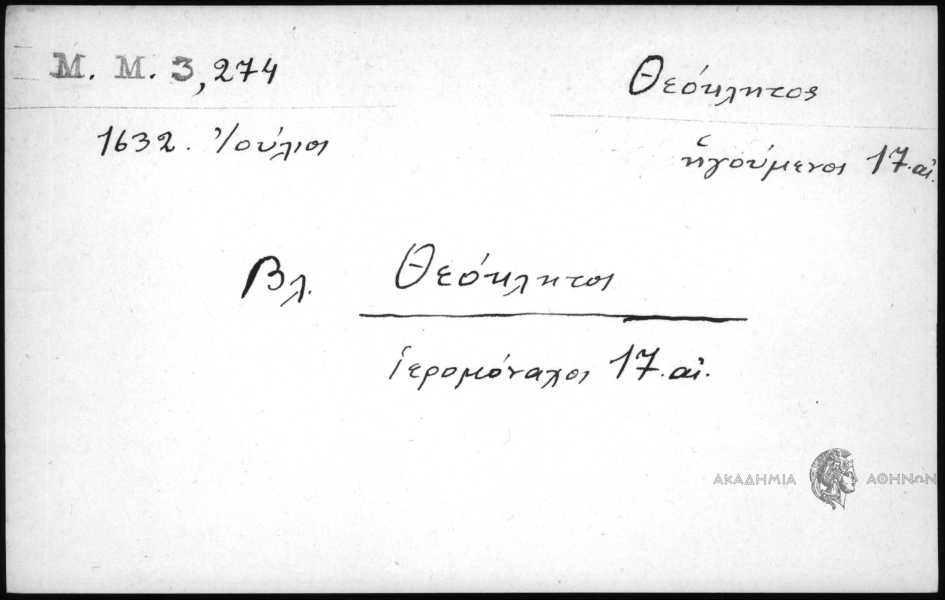 Μ. Μ. 3, 274
Θεόκλητος
1632. Ἰούλιος
ἡγούμενος 17. αἰ.
Βλ. Θεόκλητος
ἱερομόναχος 17. αἰ.
ΑΚΑΔΗΜΙΑ ΑΘΗΝΩΝ